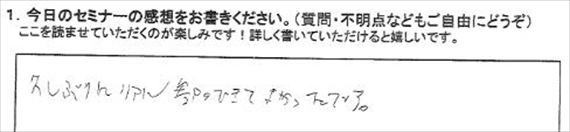 1. 今日のセミナーの感想をお書きください。(質問・不明点などもご自由にどうぞ)
ここを読ませていただくのが楽しみです!詳しく書いていただけると嬉しいです。
久しぶりにリアル参加できてよかったです。